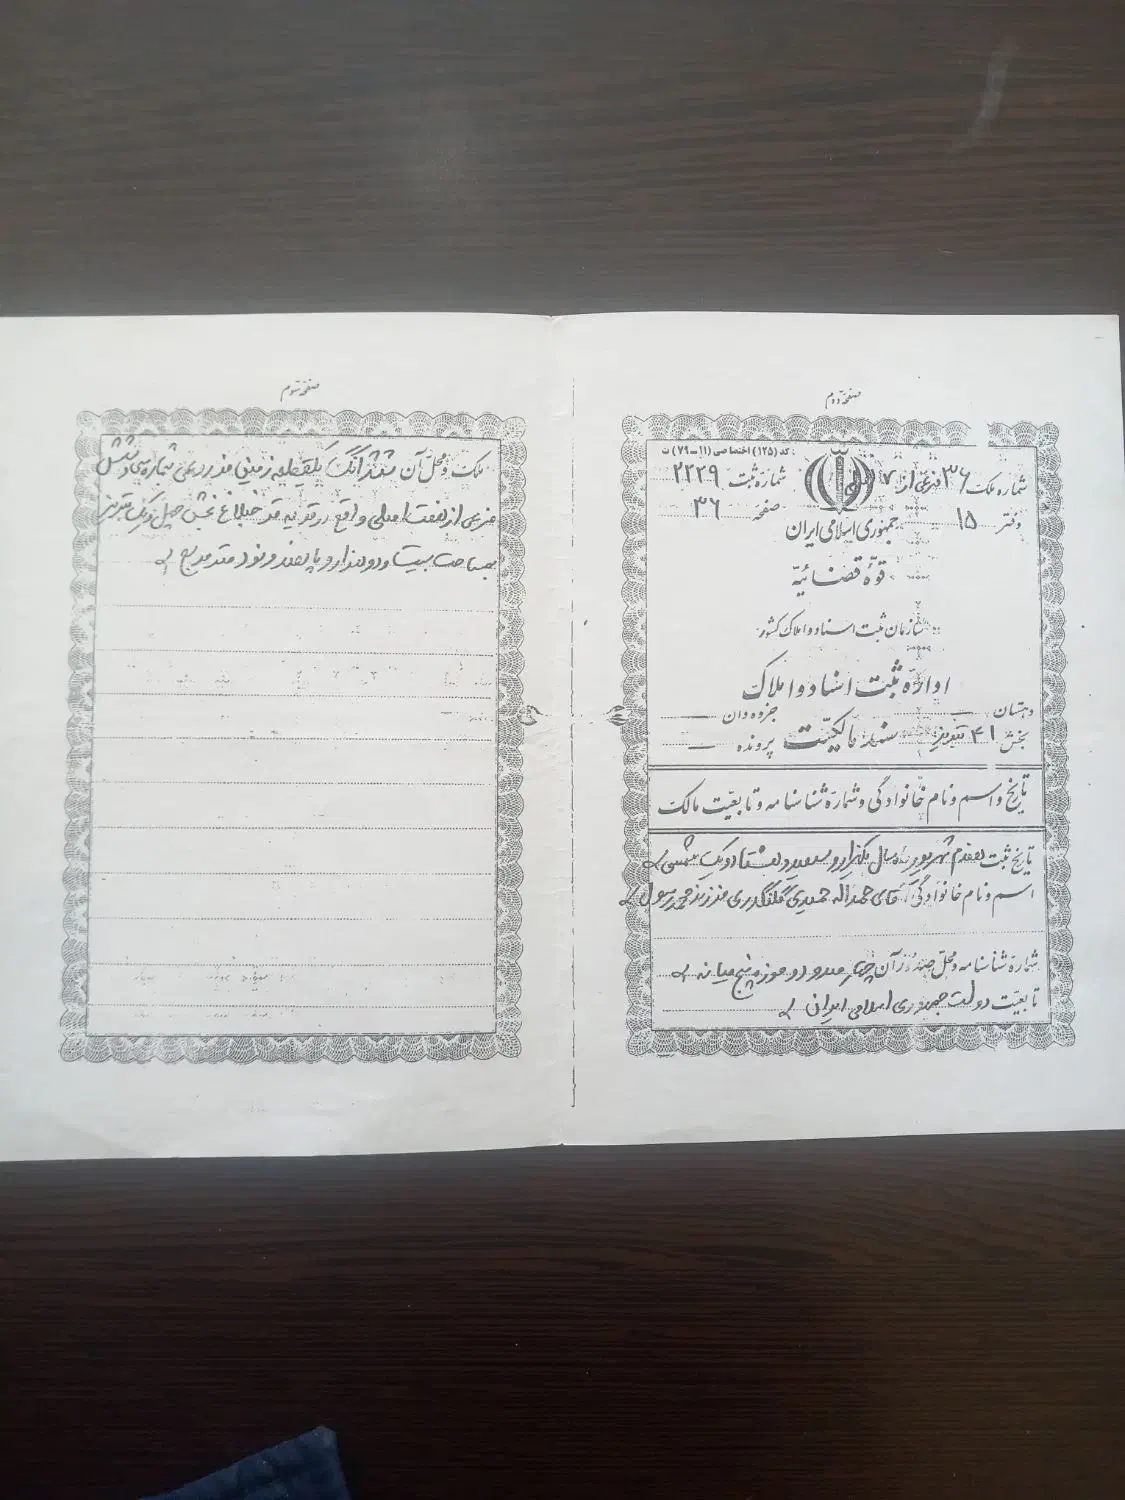 صفحه دوم
کد (۱۲۵) اختصاصی (۱۱-۷۹) ت
شماره ملک ۳۶ فرعی از ۷ اصلی شماره ثبت ۲۲۲۹
دفتر ۱۵ صفحه ۳۶
جمهوری اسلامی ایران
قوّهٔ قضائیّه
سازمان ثبت اسناد و املاک کشور
اداره ثبت اسناد و املاک
دهستان جزوه دان
بخش ۴۱ تبریز سند مالکیّت پرونده
تاریخ و اسم و نام خانوادگی و شمارهٔ شناسنامه و تابعیّت مالک
تاریخ ثبت هفدم شهریور ماه سال یکهزار و سیصد و هشتاد و یک شمسی
اسم و نام خانوادگی آقای حمداله حمیدی فرزند محمد رسول
شمارهٔ شناسنامه و محلّ صدور آن چهار صد و دو حوزه پنج میانه
تابعیّت دولت جمهوری اسلامی ایران
صفحه سوم
ملک و محلّ آن ششدانگ یکقطعه زمین مزروعی شماره سی و شش
فرعی از هفت اصلی واقع در قریه بخش چهل و یک تبریز
بمساحت بیست و دو هزار و پانصد و نود متر مربع